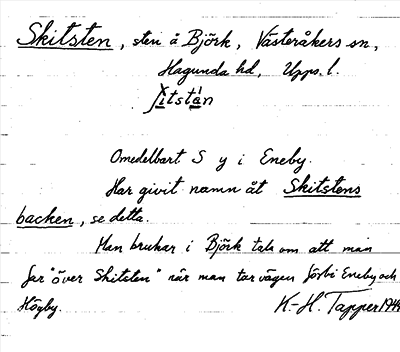 Skitsten, sten å Björk, Västeråkers sn,
Hagunda hd, Upps. l.
Omedelbart S y i Eneby.
Har givit namn åt Skitstens
backen, se detta.
Man brukar i Björk tala om att man
far "över Skitsten" när man tar vägen förbi Eneby och
Högby. K.-H. Tapper 1944